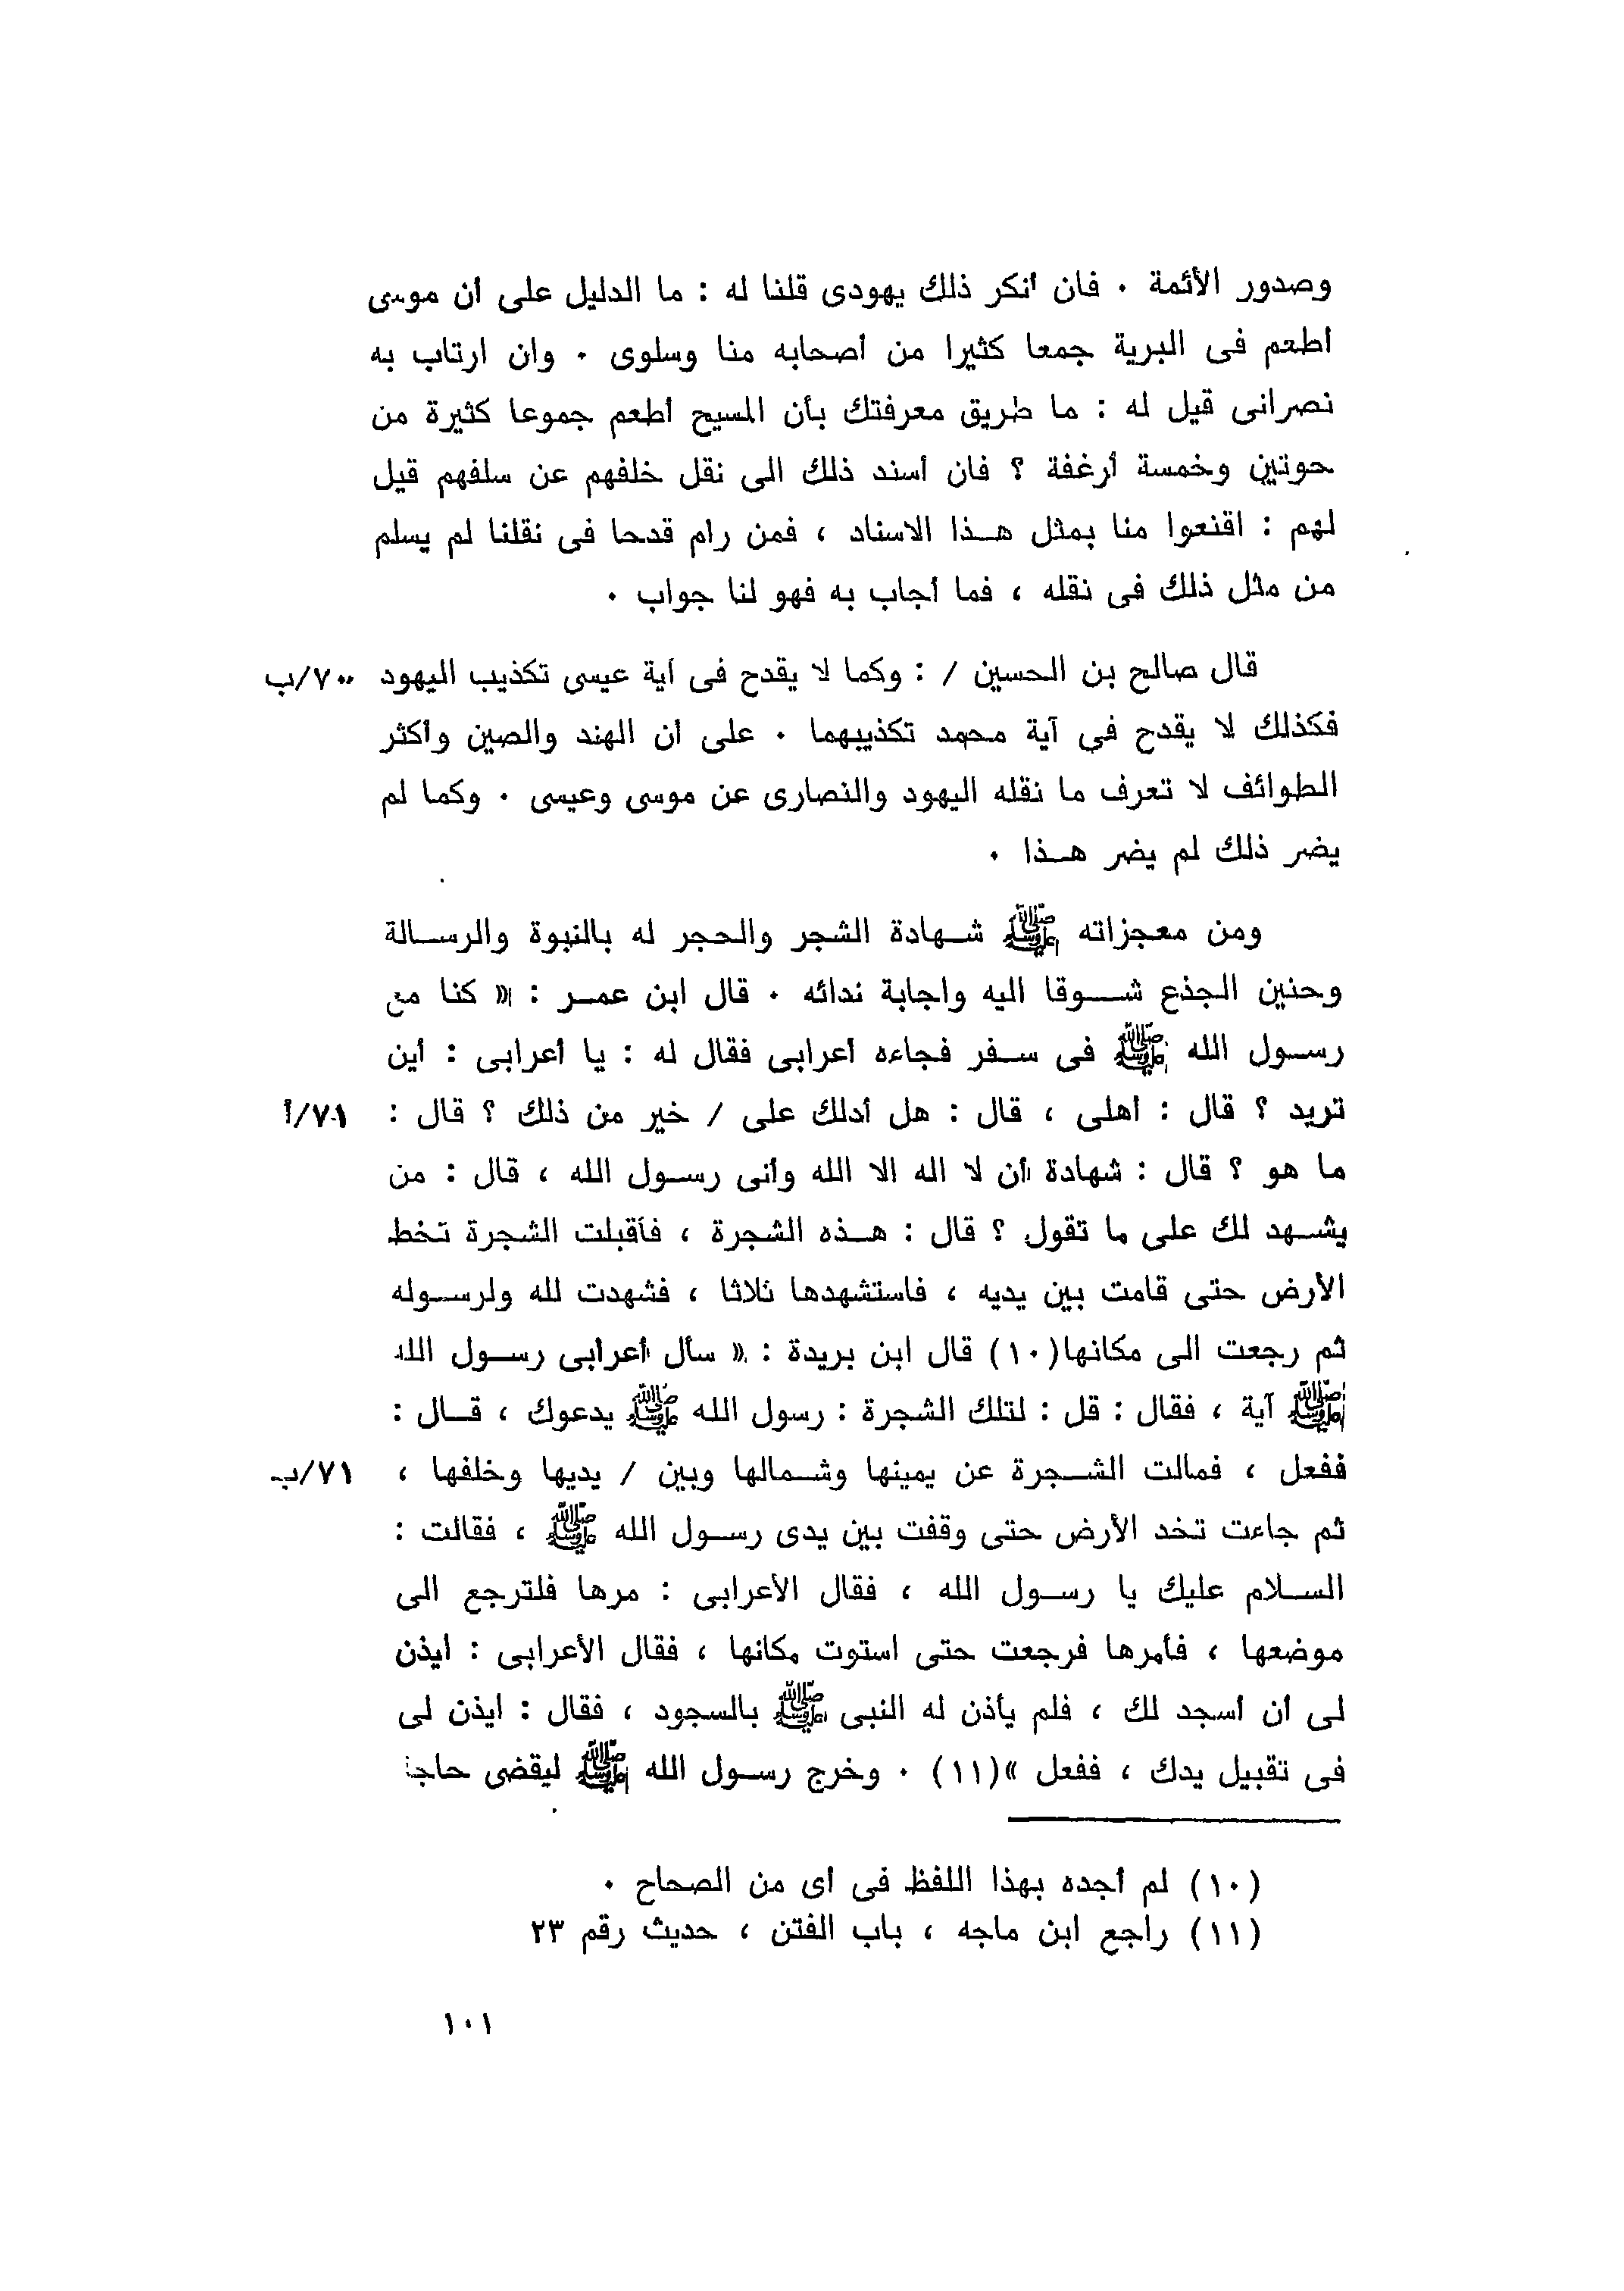 وصدور الأئمة ٠ فان أنكر ذلك يهودى قلنا له : ما الدليل على أن موسى
أطعم فى البرية جمعا كثيرا من أصحابه منا وسلوى ٠ وان ارتاب به
نصرانى قيل له : ما طريق معرفتك بأن المسيح أطعم جموعا كثيرة من
حوتين وخمسة أرغفة ؟ فان أسند ذلك الى نقل خلفهم عن سلفهم قيل
لهم : اقنعوا منا بمثل هـذا الاسناد ، فمن رام قدحا فى نقلنا لم يسلم
من مثل ذلك فى نقله ، فما أجاب به فهو لنا جواب ٠
قال صالح بن الحسين / : وكما لا يقدح فى آية عيسى تكذيب اليهود ٧٠/ب
فكذلك لا يقدح فى آية محمد تكذيبهما ٠ على أن الهند والصين وأكثر
الطوائف لا تعرف ما نقله اليهود والنصارى عن موسى وعيسى ٠ وكما لم
يضر ذلك لم يضر هـذا ٠
ومن معجزاته ﷺ شـهادة الشجر والحجر له بالنبوة والرسـالة
وحنين الجذع شـوقا اليه واجابة ندائه ٠ قال ابن عمـر : « كنا مع
رسـول الله ﷺ فى سـفر فجاءه أعرابى فقال له : يا أعرابى : أين
تريد ؟ قال : أهلى ، قال : هل أدلك على / خير من ذلك ؟ قال : ٧١/أ
ما هو ؟ قال : شهادة أن لا اله الا الله وأنى رسـول الله ، قال : من
يشـهد لك على ما تقول ؟ قال : هـذه الشجرة ، فأقبلت الشجرة تخط
الأرض حتى قامت بين يديه ، فاستشهدها ثلاثا ، فشهدت لله ولرسـوله
ثم رجعت الى مكانها(١٠) قال ابن بريدة : « سأل أعرابى رسـول الله
ﷺ آية ، فقال : قل : لتلك الشجرة : رسول الله ﷺ يدعوك ، قـال :
ففعل ، فمالت الشـجرة عن يمينها وشـمالها وبين / يديها وخلفها ، ٧١/ب
ثم جاءت تخد الأرض حتى وقفت بين يدى رسـول الله ﷺ ، فقالت :
السـلام عليك يا رسـول الله ، فقال الأعرابى : مرها فلترجع الى
موضعها ، فأمرها فرجعت حتى استوت مكانها ، فقال الأعرابى : ايذن
لى أن أسجد لك ، فلم يأذن له النبى ﷺ بالسجود ، فقال : ايذن لى
فى تقبيل يدك ، ففعل »(١١) ٠ وخرج رسـول الله ﷺ ليقضى
(١٠) لم أجده بهذا اللفظ فى أى من الصحاح ٠
(١١) راجع ابن ماجه ، باب الفتن ، حديث رقم ٢٣
١٠١